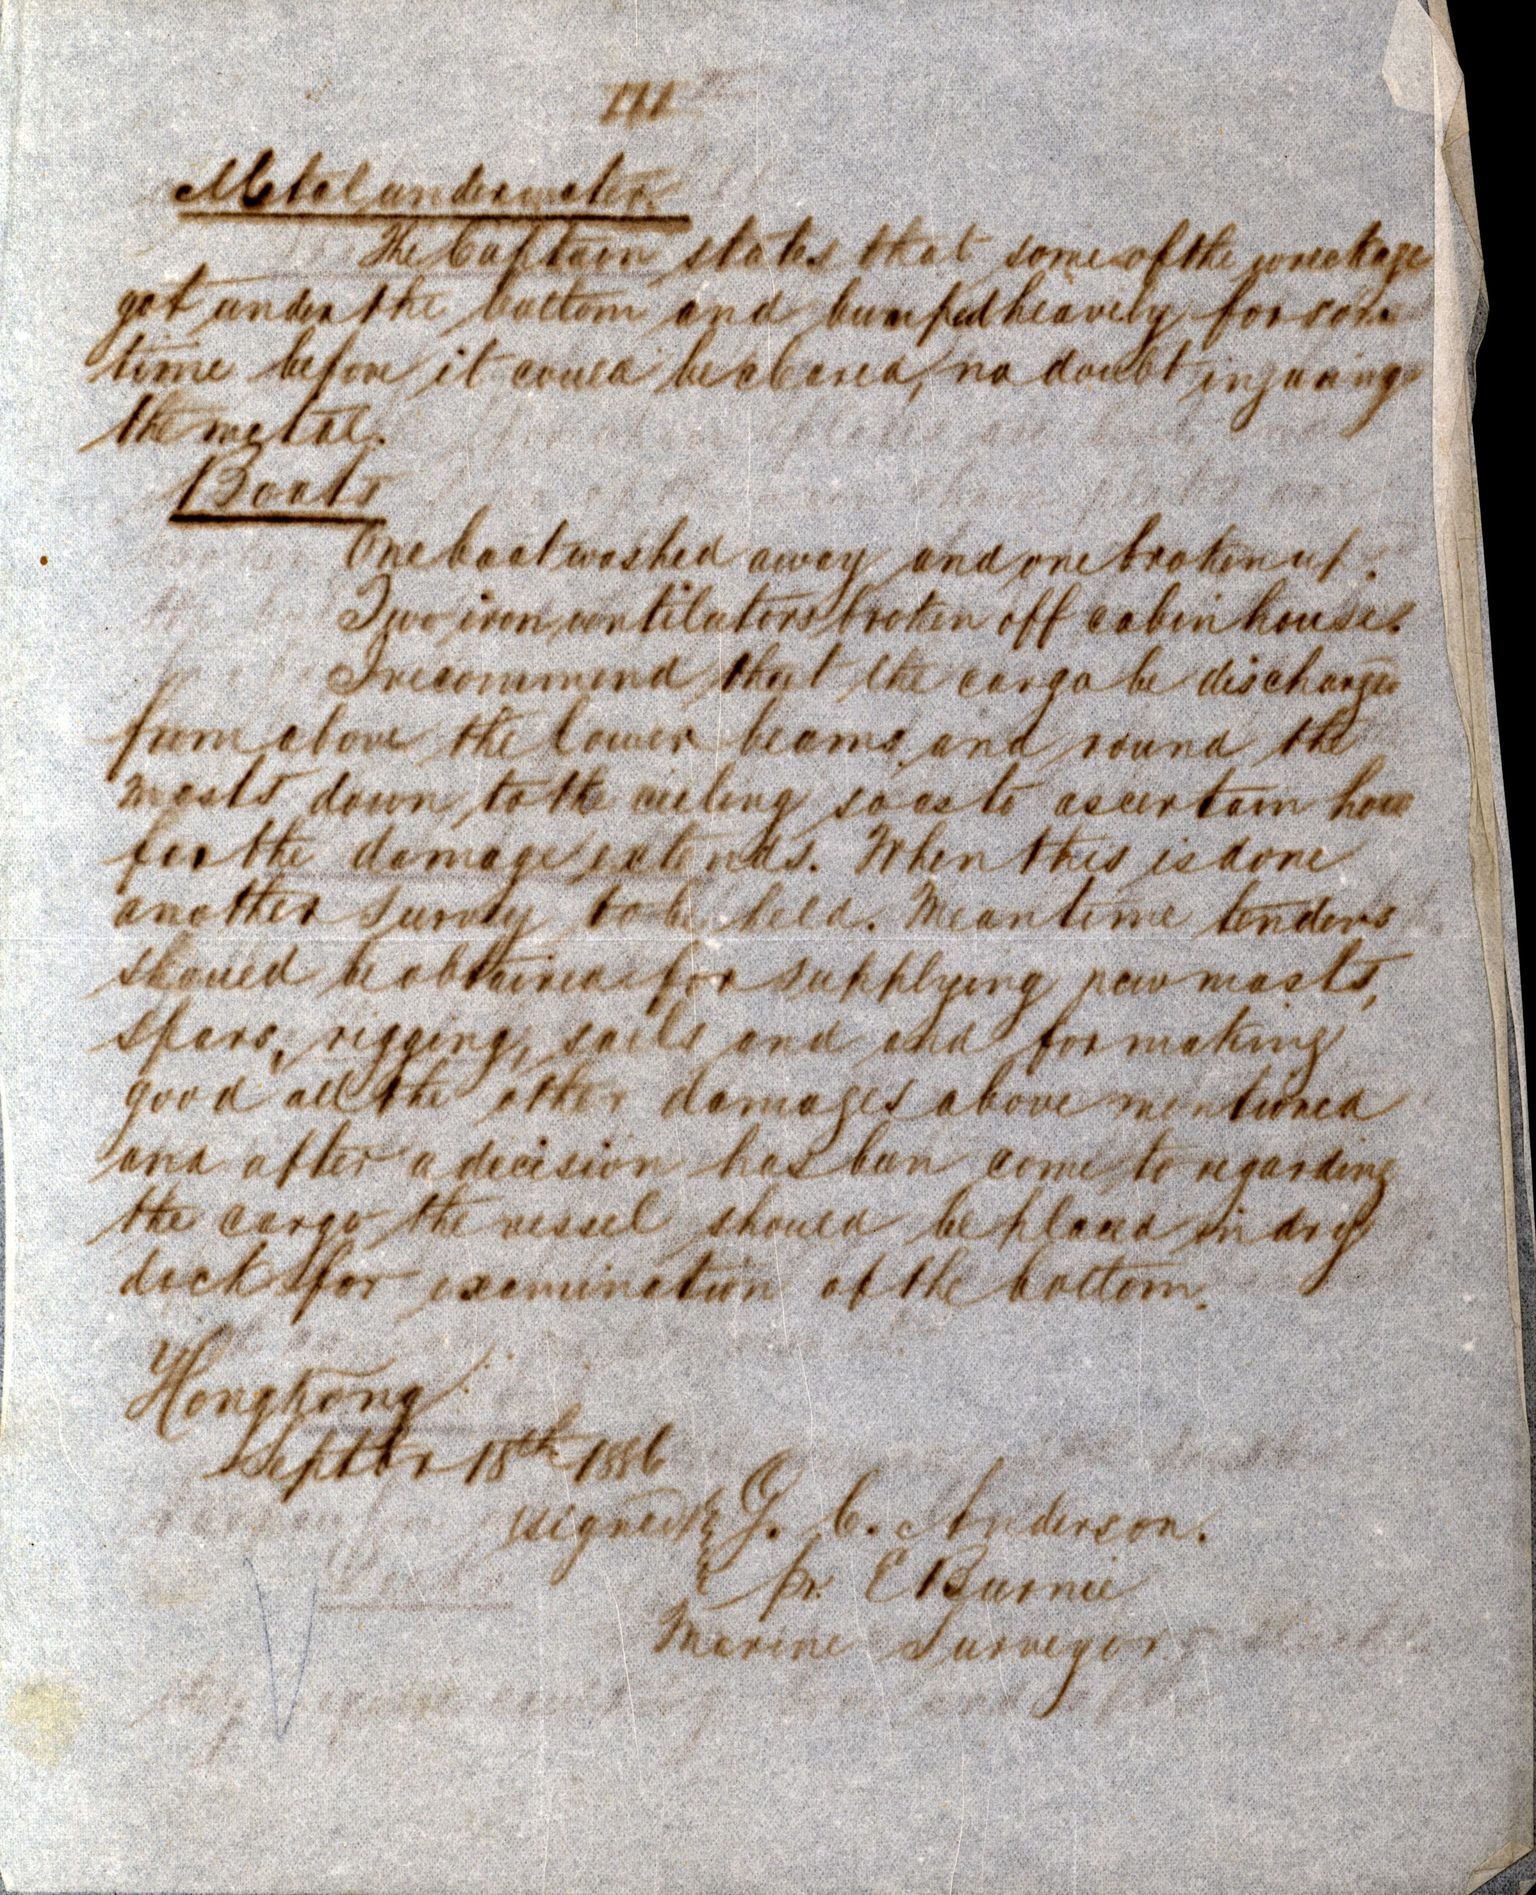 III
Metal underwater.
The Captain states that some of the wreckage
got under the bottom and bumped heavely for some
time before it could be cleared, no doubt injuring
the metal.
Boats
One boat washed away and one broken up.
Two iron ventilators broken off cabin house.
I recommend that the cargo be discharged
from above the lower beams and round the
masts down to the ceiling so as to ascertain how
far the damage extends. When this is done
another survey to be held. Meantime tenders
should be obtained for supplying new masts,
spars, rigging, sails and and for making
good all the other damages above mentioned
and after a decision has been come to regarding
the cargo the vessel should be placed in dry
dock for examination of the bottom.
Hongkong
Septbr 18th 1886
signed G. C. Anderson.
pr. E Burnie
Marine Surveyor.